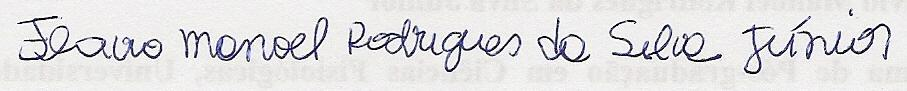 Flavio Manoel Rodrigues da Silva Júnior